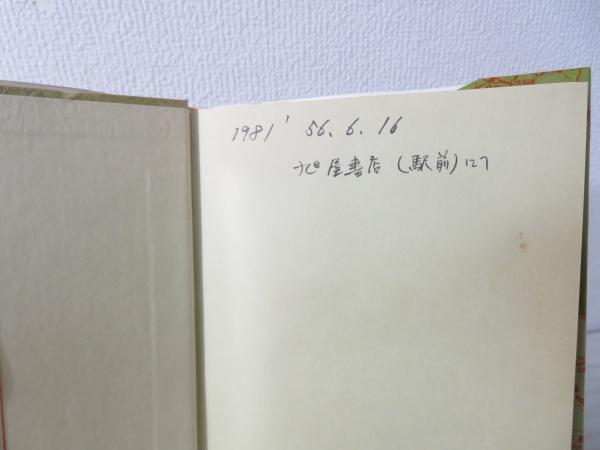 1981' 56. 6. 16
旭屋書店 (駅前)にて